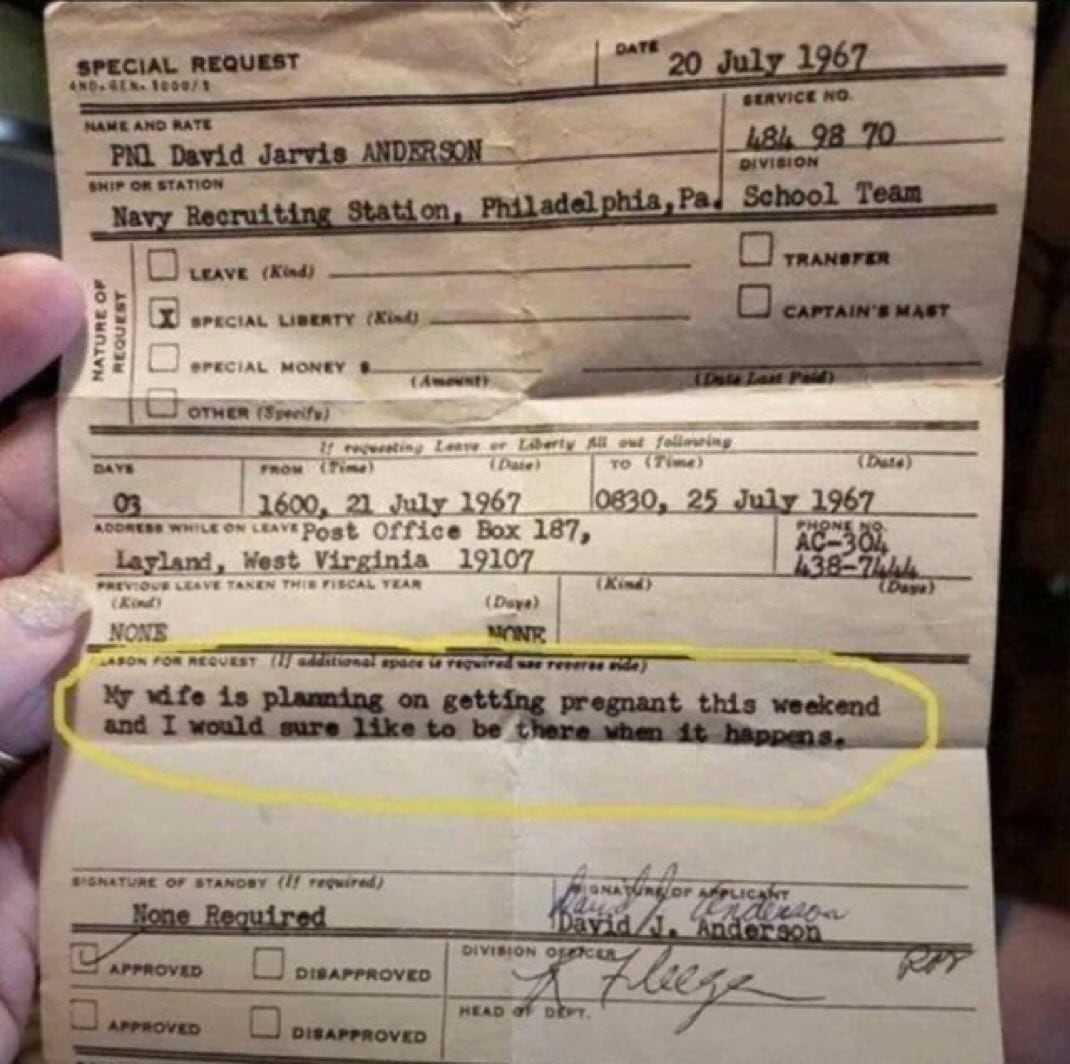 SPECIAL REQUEST
DATE 20 July 1967
SERVICE NO.
NAME AND RATE
484 98 70
PN1 David Jarvis ANDERSON
DIVISION
SHIP OR STATION
Navy Recruiting Station, Philadelphia,Pa. School Team
NATURE OF REQUEST
LEAVE (Kind)
TRANSFER
X SPECIAL LIBERTY (Kind)
CAPTAIN'S MAST
SPECIAL MONEY $
(Amount) (Date Last Paid)
OTHER (Specify)
If requesting Leave or Liberty fill out following
DAYS FROM (Time) (Date) TO (Time) (Date)
03 1600, 21 July 1967 0830, 25 July 1967
ADDRESS WHILE ON LEAVE Post Office Box 187,
PHONE NO.
AC-304
Layland, West Virginia 19107
438-7444
PREVIOUS LEAVE TAKEN THIS FISCAL YEAR
(Kind) (Days) (Kind) (Days)
NONE NONE
REASON FOR REQUEST (If additional space is required use reverse side)
My wife is planning on getting pregnant this weekend
and I would sure like to be there when it happens.
SIGNATURE OF STANDBY (If required)
SIGNATURE OF APPLICANT
David J Anderson
None Required
David J. Anderson
APPROVED DISAPPROVED
DIVISION OFFICER
HEAD OF DEPT.
APPROVED DISAPPROVED